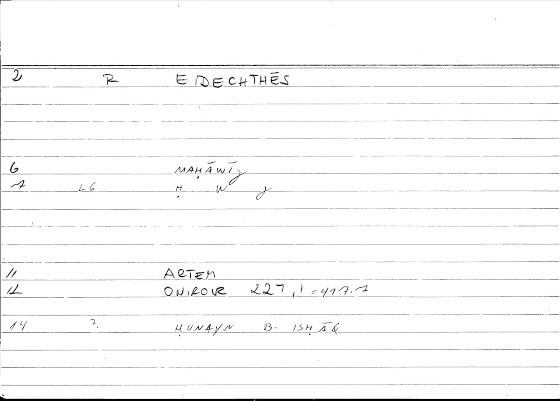 2 R EIDECHTHĒS
6 MAḤĀWĪJ
7 LG Ḥ W J
11 ARTEM
12 ONIROCR 227,1 = 417.7
14 ? ḤUNAYN B. ISḤĀQ